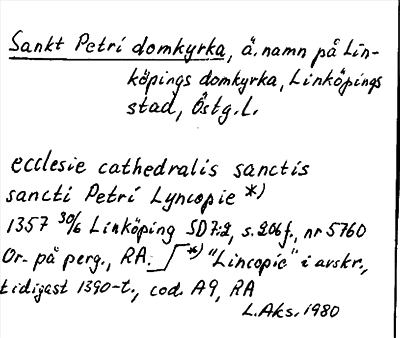 Sankt Petri domkyrka, ä. namn på Lin-
köpings domkyrka, Linköpings
stad, Östg. L.
ecclesie cathedralis sanctis
sancti Petri Lyncopie *)
1357 30/6 Linköping SD 7:2, s. 206 f., nr 5760
Or. på perg., RA. *) "Lincopie" i avskr.,
tidigast 1390-t., cod. A9, RA
L. Aks. 1980